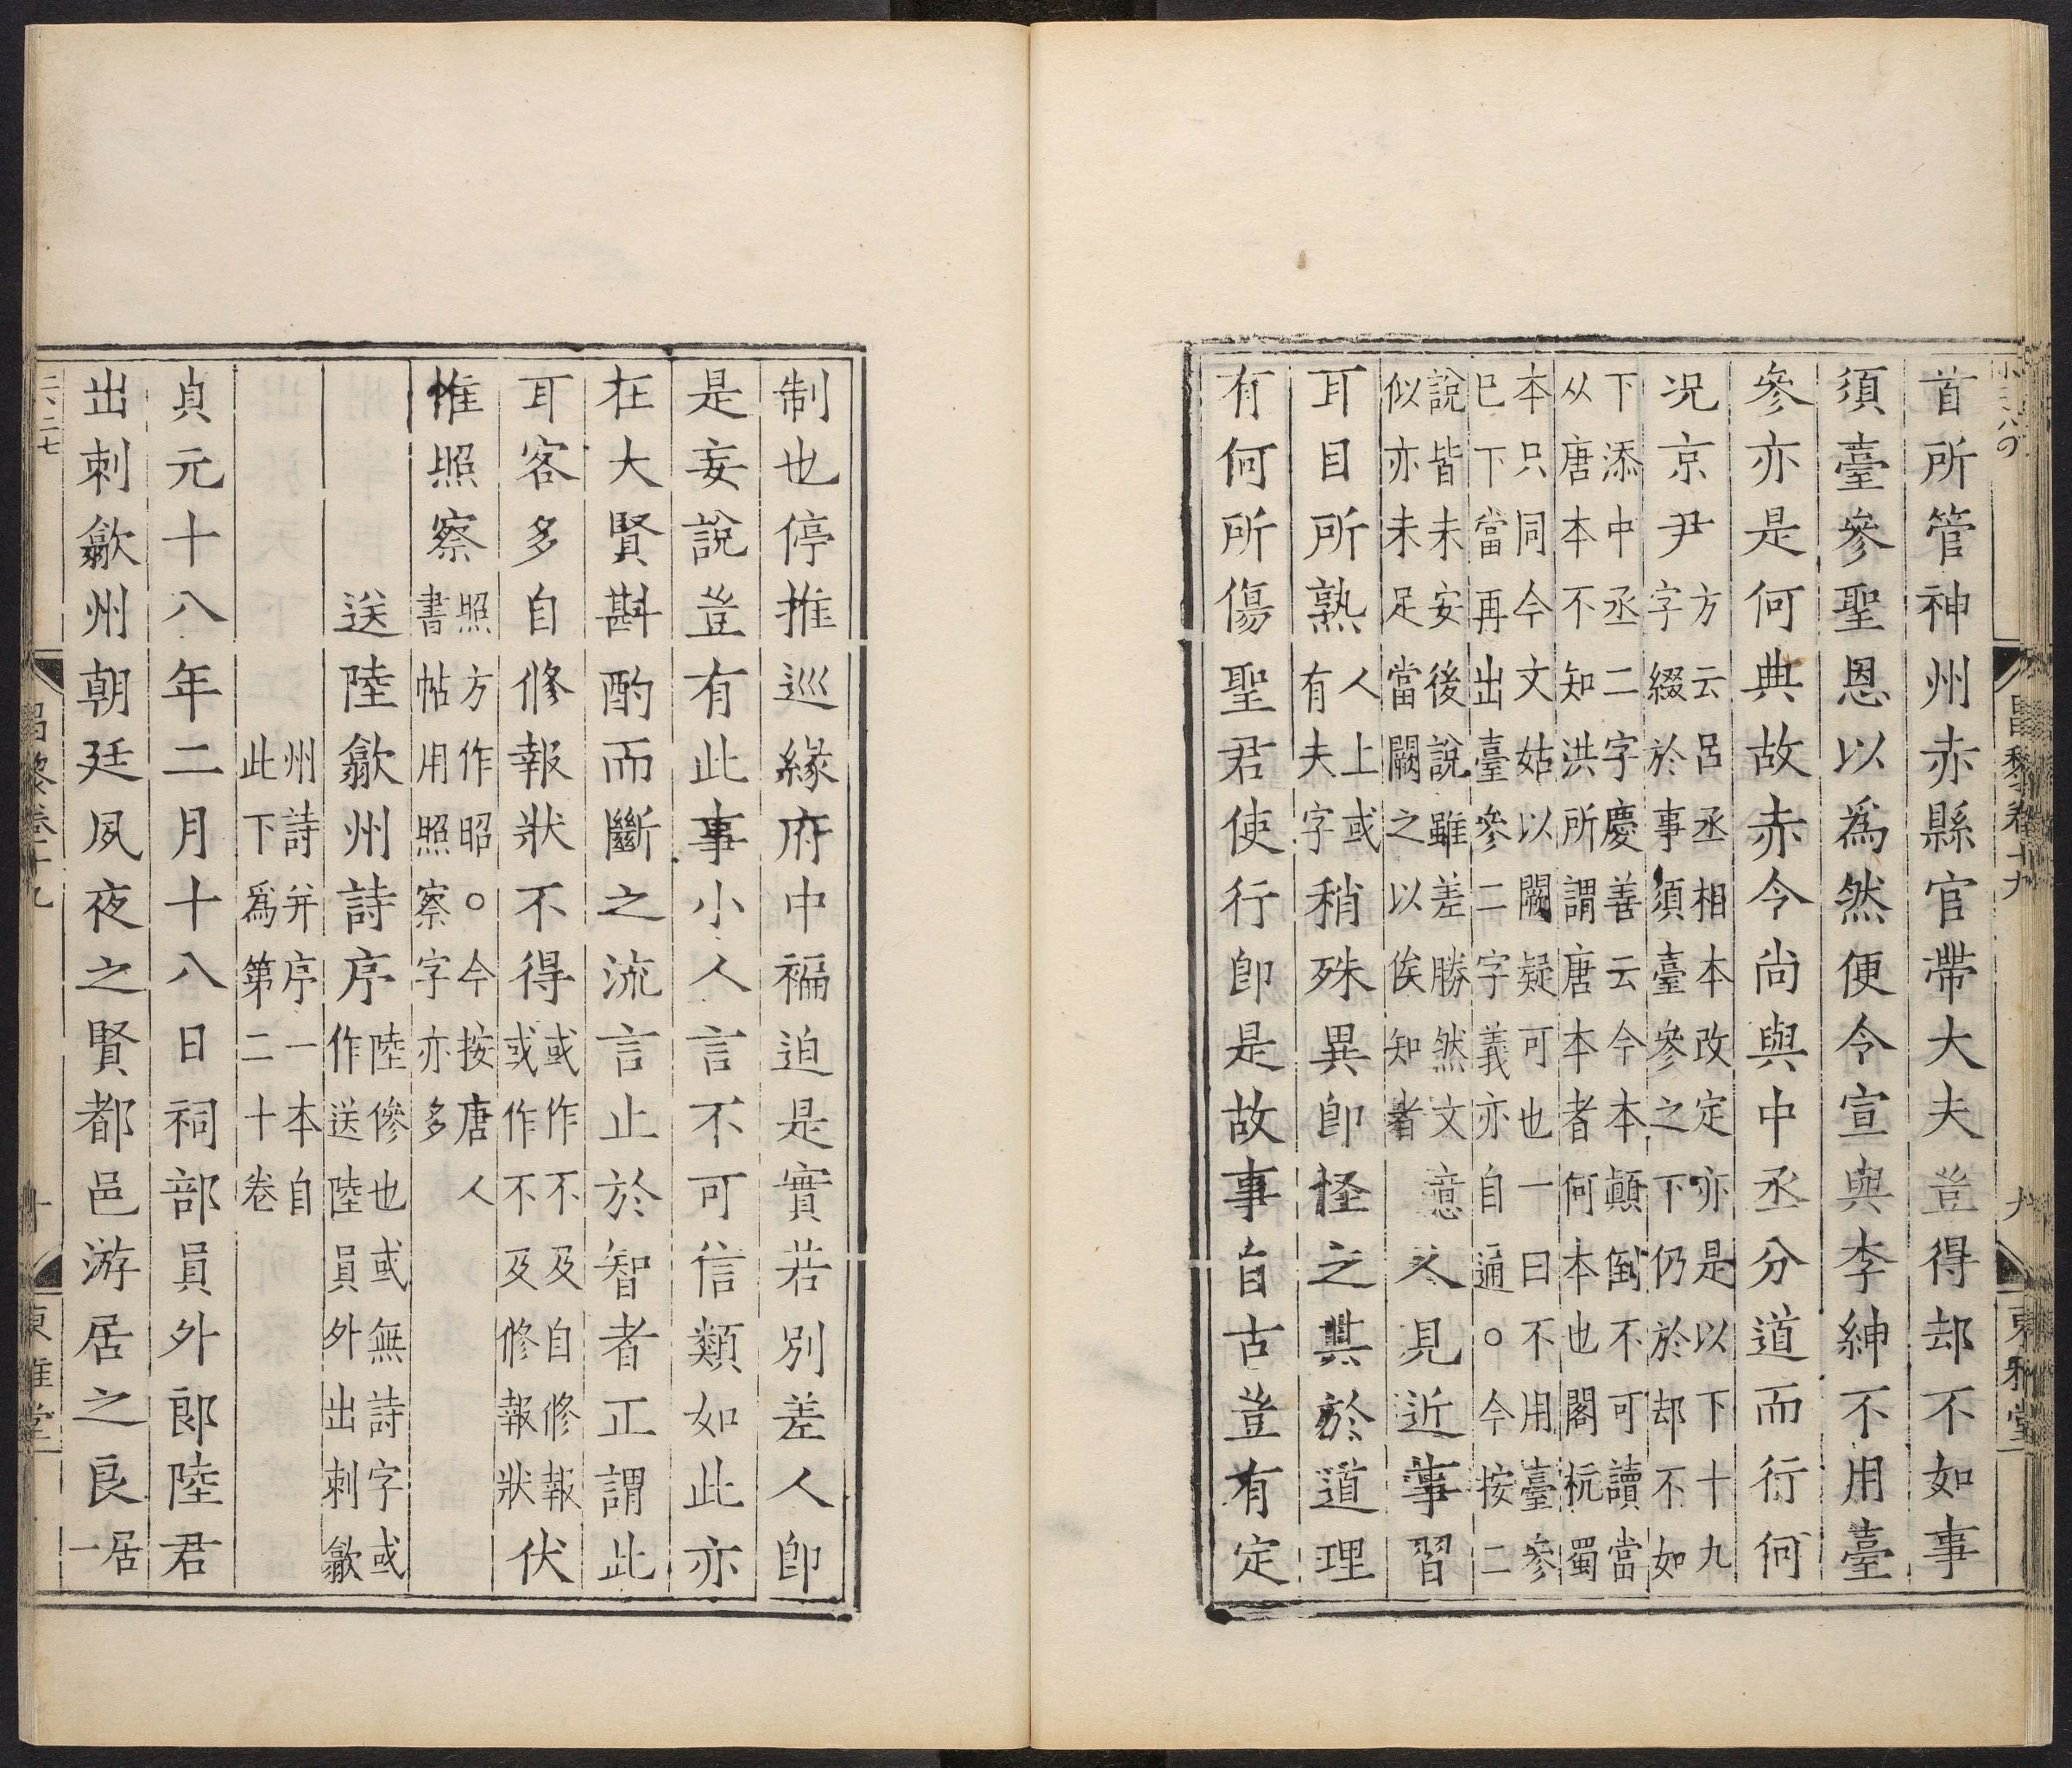 昌黎卷十九　九　東雅堂
首所管神州赤縣官帶大夫豈得却不如事
須臺參聖恩以爲然便令宣與李紳不用臺
參亦是何典故赤令尚與中丞分道而行何
况京尹方云呂丞相本改定亦是以下十九
字綴於事須臺參之下仍於却不如
下添中丞二字慶善云今本顛倒不可讀當
从唐本不知洪所謂唐本者何本也閣杭蜀
本只同今文姑以闕疑可也一曰不用臺參
巳下當再出臺參二字義亦自通○今按二
說皆未安後說雖差勝然文意
似亦未足當闕之以俟知者人見近事習
耳目所熟人上或有夫字稍殊異卽怪之其於道理
有何所傷聖君使行卽是故事自古豈有定
制也停推巡緣府中褊迫是實若別差人卽
是妄說豈有此事小人言不可信類如此亦
在大賢斟酌而斷之流言止於智者正謂此
耳客多自修報狀不得或作不及自修報狀
或作不及修報狀伏
惟照察照方作昭○今按唐人
書帖用照察字亦多
送陸歙州詩序陸傪也或無詩字或
作送陸員外出刺歙
州詩并序一本自
此下爲第二十卷
貞元十八年二月十八日祠部員外郎陸君
出刺歙州朝廷夙夜之賢都邑游居之良居一
二、二七
昌黎卷十九　十　東雅堂